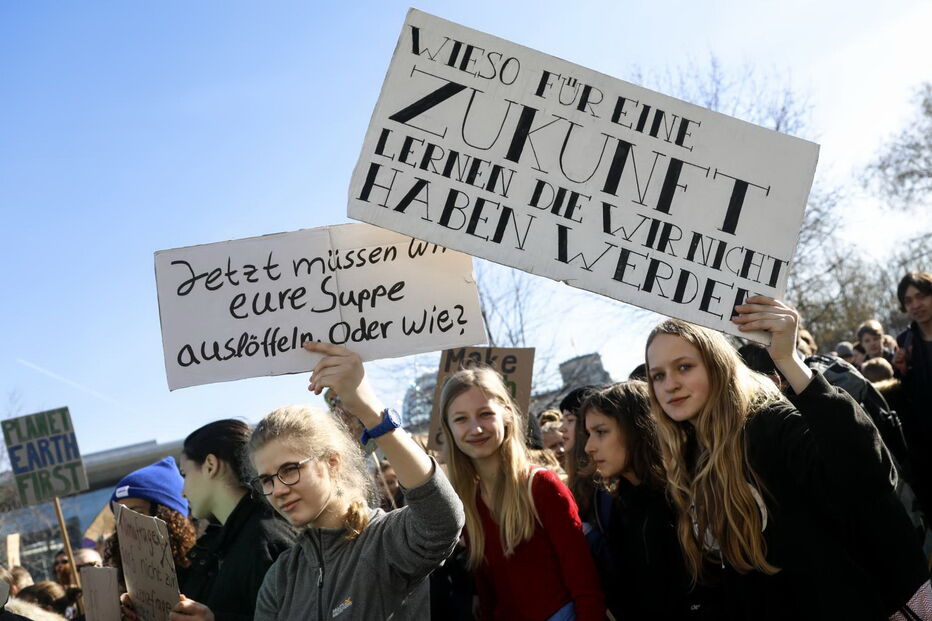 WIESO FÜR EINE
ZUKUNFT
LERNEN DIE WIR NICHT
HABEN WERDEN
Jetzt müssen wir
eure Suppe
auslöffeln. Oder wie?
Make
PLANET
EARTH
FIRST
nicht